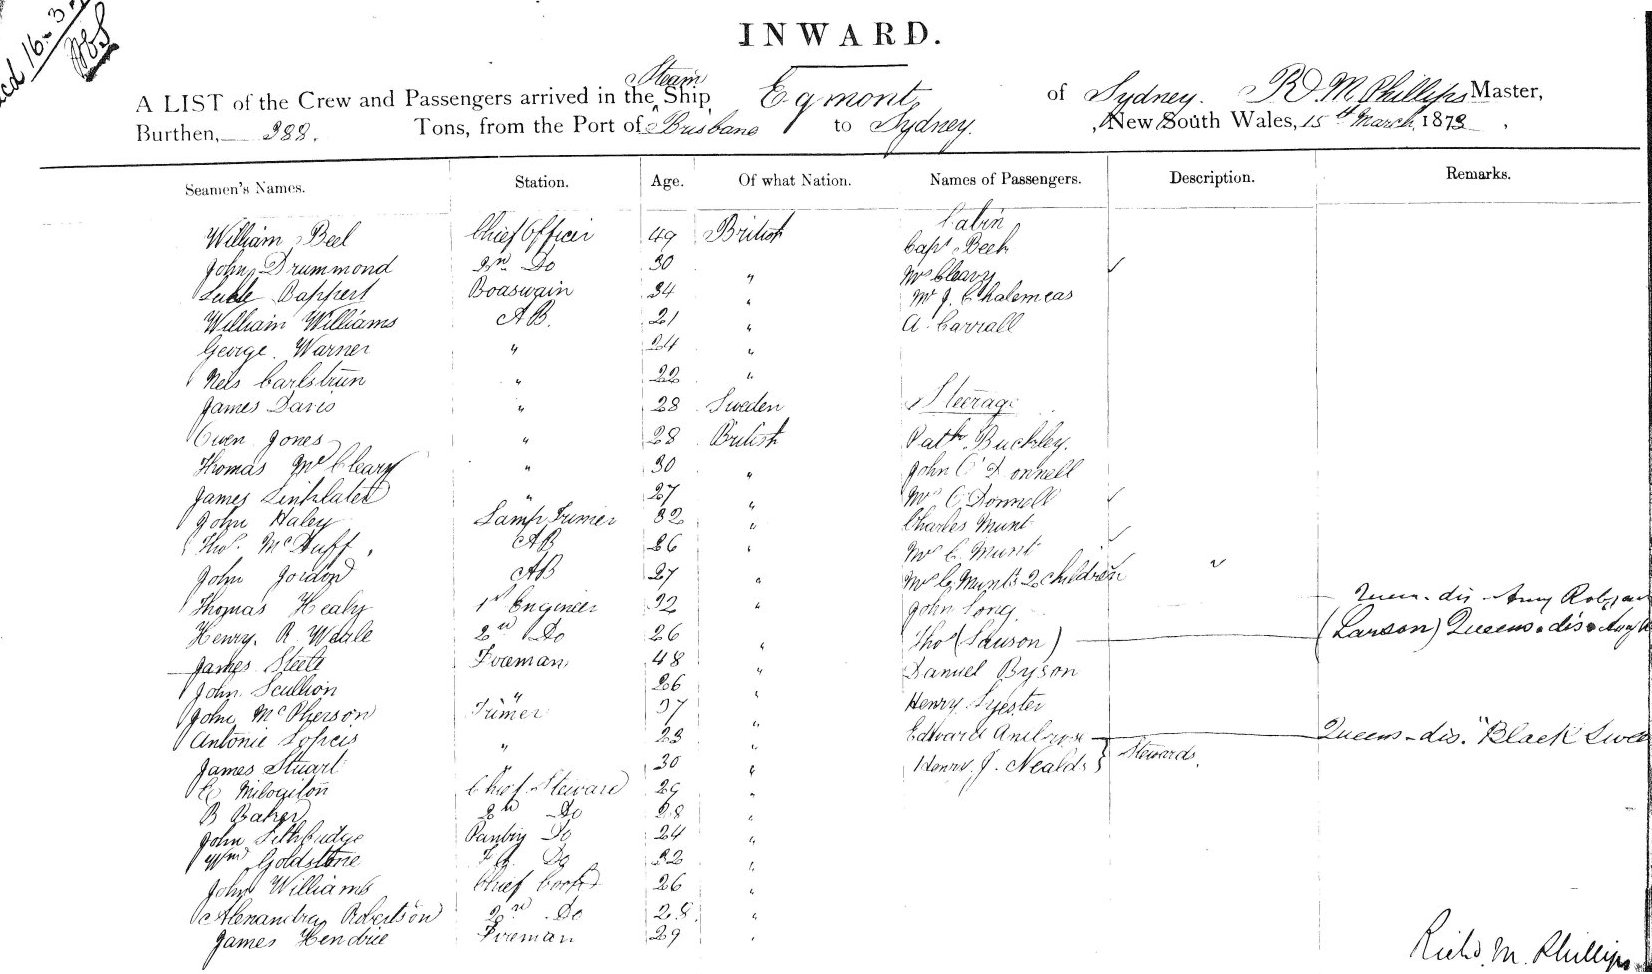 16.3
INWARD.
Steam
A LIST of the Crew and Passengers arrived in the Ship Egmont of Sydney. R. M. Phillips Master,
Burthen, 388. Tons, from the Port of Brisbane to Sydney. , New South Wales, 15th March, 1873 ,
Seamen's Names. Station. Age. Of what Nation. Names of Passengers. Description. Remarks.
Cabin
William Beel Chief Officer 49 British Capt Beek
John Drummond 2nd Do 30 " Mrs Cleary ✓
Bappert Boaswain 34 " Mr J. Chalemeas
William Williams AB. 21 " A. Carrall
George Warner " 24 "
Nels Carlstrun " 22 "
James Davis " 28 Sweden Steerage
Owen Jones " 28 British Patk Buckley.
Thomas McCleary " 30 " John O'Donnell
James Sinklater " 27 " Mrs O'Donnell ✓
John Haley Lamp Trimer 32 " Charles Munt
Thos. McDuff AB 26 " Mrs C. Munt ✓
John Jordon AB 27 " Mrs C Munt's 2 children ✓
Thomas Healy 1st Engineer 32 " John Long Queens - dis - Amy Robsart
Henry. R. Weale 2nd Do 26 " Thos (Lauson) (Larson) Queens - dis - Amy
James Steele Foreman 48 " Daniel Byson
John Scullion " 26 " Henry Syester
John McPherson Trimer 37 "
Antonie Lopeis " 23 " Edward Queens - dis. "Black
James Stuart " 30 " Henry. J. Nealds } Stewards.
C Chief Steward 29 "
B Baker 2nd Do 28 "
John Lethbridge Pantry Do 24 "
Wm Goldstone Do 22 "
John Williams Chief Cook 26 "
Alexandra Robertson 2nd Do 28. "
James Hendrie Foreman 29 "
Richd. M. Phillips